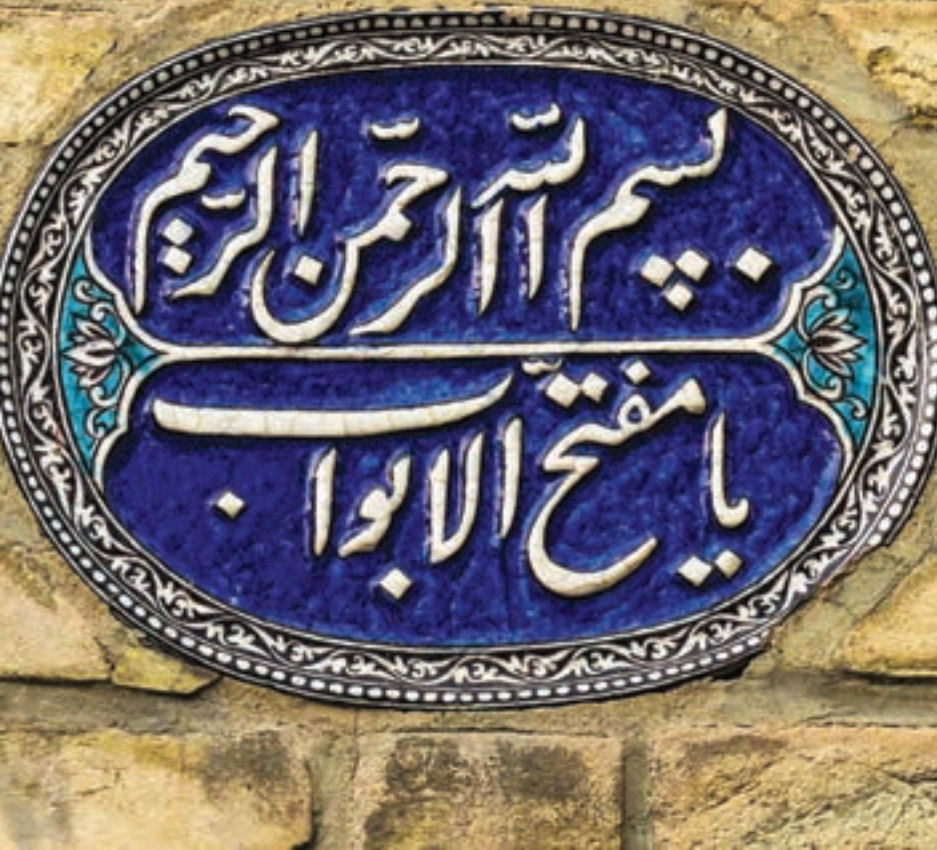 بسم الله الرحمن الرحیم
یا مفتح الابواب